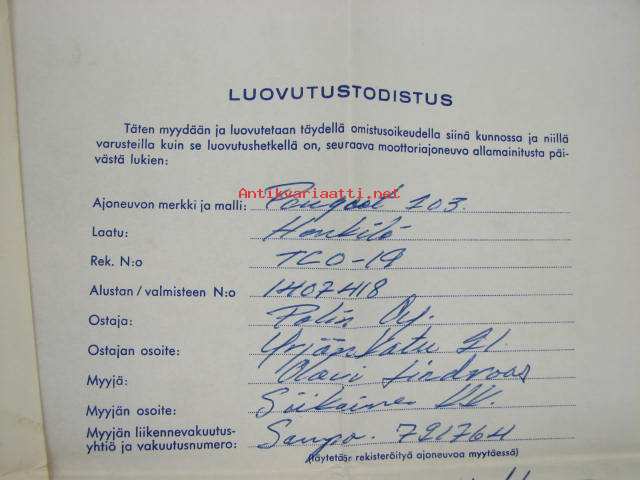 LUOVUTUSTODISTUS
Täten myydään ja luovutetaan täydellä omistusoikeudella siinä kunnossa ja niillä
varusteilla kuin se luovutushetkellä on, seuraava moottoriajoneuvo allamainitusta päi-
västä lukien:
Antikvariaatti.net
Ajoneuvon merkki ja malli: 203.
Laatu: Henkilö
Rek. N:o TCO-19
Alustan / valmisteen N:o 1407418
Ostaja: Oy.
Ostajan osoite: Yrjönkatu 21.
Myyjä: Olavi Lindroos
Myyjän osoite: Siikainen KK.
Myyjän liikennevakuutus-
yhtiö ja vakuutusnumero: Sampo. 791764
(täytetään rekisteröityä ajoneuvoa myytäessä)